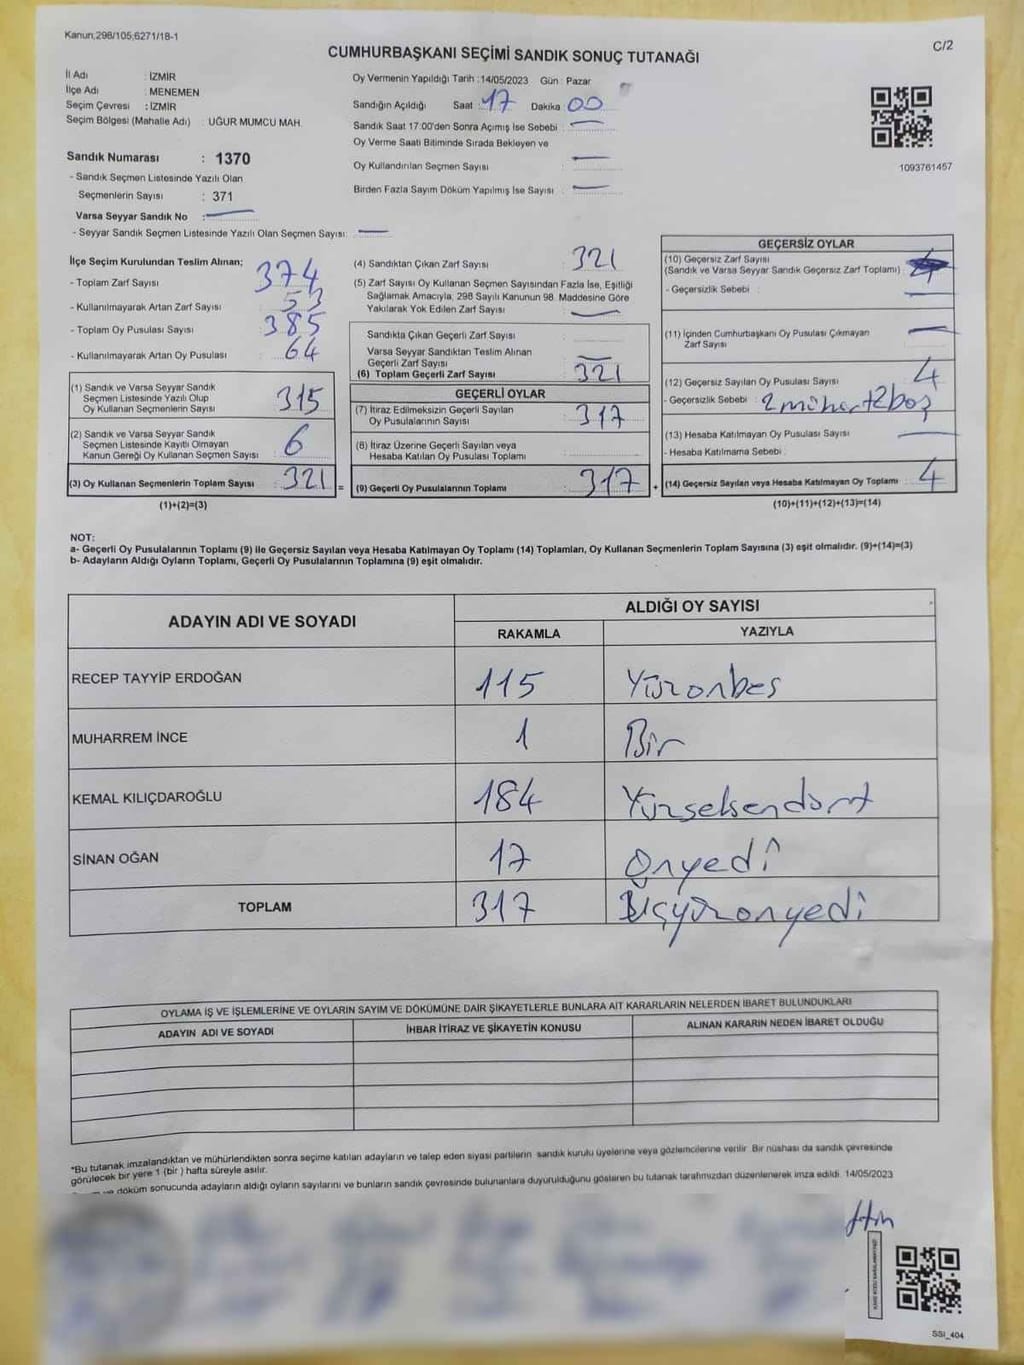 Kanun,298/105,6271/18-1
C/2
CUMHURBAŞKANI SEÇİMİ SANDIK SONUÇ TUTANAĞI
İl Adı : İZMİR
İlçe Adı : MENEMEN
Seçim Çevresi : İZMİR
Seçim Bölgesi (Mahalle Adı) : UĞUR MUMCU MAH.
Sandık Numarası : 1370
- Sandık Seçmen Listesinde Yazılı Olan
Seçmenlerin Sayısı : 371
Varsa Seyyar Sandık No :
- Seyyar Sandık Seçmen Listesinde Yazılı Olan Seçmen Sayısı:
Oy Vermenin Yapıldığı Tarih :14/05/2023 Gün : Pazar
Sandığın Açıldığı Saat : 17 Dakika 00
Sandık Saat 17:00'den Sonra Açımış İse Sebebi :
Oy Verme Saati Bitiminde Sırada Bekleyen ve
Oy Kullandırılan Seçmen Sayısı
Birden Fazla Sayım Döküm Yapılmış İse Sayısı :
1093761457
İlçe Seçim Kurulundan Teslim Alınan;
- Toplam Zarf Sayısı : 374
- Kullanılmayarak Artan Zarf Sayısı : 53
- Toplam Oy Pusulası Sayısı : 385
- Kullanılmayarak Artan Oy Pusulası : 64
(1) Sandık ve Varsa Seyyar Sandık
Seçmen Listesinde Yazılı Olup
Oy Kullanan Seçmenlerin Sayısı : 315
(2) Sandık ve Varsa Seyyar Sandık
Seçmen Listesinde Kayıtlı Olmayan
Kanun Gereği Oy Kullanan Seçmen Sayısı : 6
(3) Oy Kullanan Seçmenlerin Toplam Sayısı : 321 =
(1)+(2)=(3)
(4) Sandıktan Çıkan Zarf Sayısı : 321
(5) Zarf Sayısı Oy Kullanan Seçmen Sayısından Fazla İse, Eşitliği
Sağlamak Amacıyla, 298 Sayılı Kanunun 98. Maddesine Göre
Yakılarak Yok Edilen Zarf Sayısı :
Sandıkta Çıkan Geçerli Zarf Sayısı :
Varsa Seyyar Sandıktan Teslim Alınan
Geçerli Zarf Sayısı :
(6) Toplam Geçerli Zarf Sayısı : 321
GEÇERLİ OYLAR
(7) İtiraz Edilmeksizin Geçerli Sayılan
Oy Pusulasının Sayısı : 317
(8) İtiraz Üzerine Geçerli Sayılan veya
Hesaba Katılan Oy Pusulası Toplamı :
(9) Geçerli Oy Pusulalarının Toplamı : 317 +
GEÇERSİZ OYLAR
(10) Geçersiz Zarf Sayısı
(Sandık ve Varsa Seyyar Sandık Geçersiz Zarf Toplamı) :
- Geçersizlik Sebebi :
(11) İçinden Cumhurbaşkanı Oy Pusulası Çıkmayan
Zarf Sayısı :
(12) Geçersiz Sayılan Oy Pusulası Sayısı : 4
- Geçersizlik Sebebi : 2 mühür+2boş
(13) Hesaba Katılmayan Oy Pusulası Sayısı :
- Hesaba Katılmama Sebebi :
(14) Geçersiz Sayılan veya Hesaba Katılmayan Oy Toplamı : 4
(10)+(11)+(12)+(13)=(14)
NOT:
a- Geçerli Oy Pusulalarının Toplamı (9) ile Geçersiz Sayılan veya Hesaba Katılmayan Oy Toplamı (14) Toplamları, Oy Kullanan Seçmenlerin Toplam Sayısına (3) eşit olmalıdır. (9)+(14)=(3)
b- Adayların Aldığı Oyların Toplamı, Geçerli Oy Pusulalarının Toplamına (9) eşit olmalıdır.
ADAYIN ADI VE SOYADI
ALDIĞI OY SAYISI
RAKAMLA YAZIYLA
RECEP TAYYİP ERDOĞAN 115 Yüzonbeş
MUHARREM İNCE 1 Bir
KEMAL KILIÇDAROĞLU 184 Yüzseksendört
SİNAN OĞAN 17 Onyedi
TOPLAM 317 Üçyüzonyedi
OYLAMA İŞ VE İŞLEMLERİNE VE OYLARIN SAYIM VE DÖKÜMÜNE DAİR ŞİKAYETLERLE BUNLARA AİT KARARLARIN NELERDEN İBARET BULUNDUKLARI
ADAYIN ADI VE SOYADI İHBAR İTİRAZ VE ŞİKAYETİN KONUSU ALINAN KARARIN NEDEN İBARET OLDUĞU
*Bu tutanak imzalandıktan ve mühürlendikten sonra seçime katılan adayların ve talep eden siyasi partilerin sandık kurulu üyelerine veya gözlemcilerine verilir. Bir nüshası da sandık çevresinde
görülecek bir yere 1 (bir ) hafta süreyle asılır.
ve döküm sonucunda adayların aldığı oyların sayılarını ve bunların sandık çevresinde bulunanlara duyurulduğunu gösteren bu tutanak tarafımızdan düzenlenerek imza edildi. 14/05/2023
SSI_404